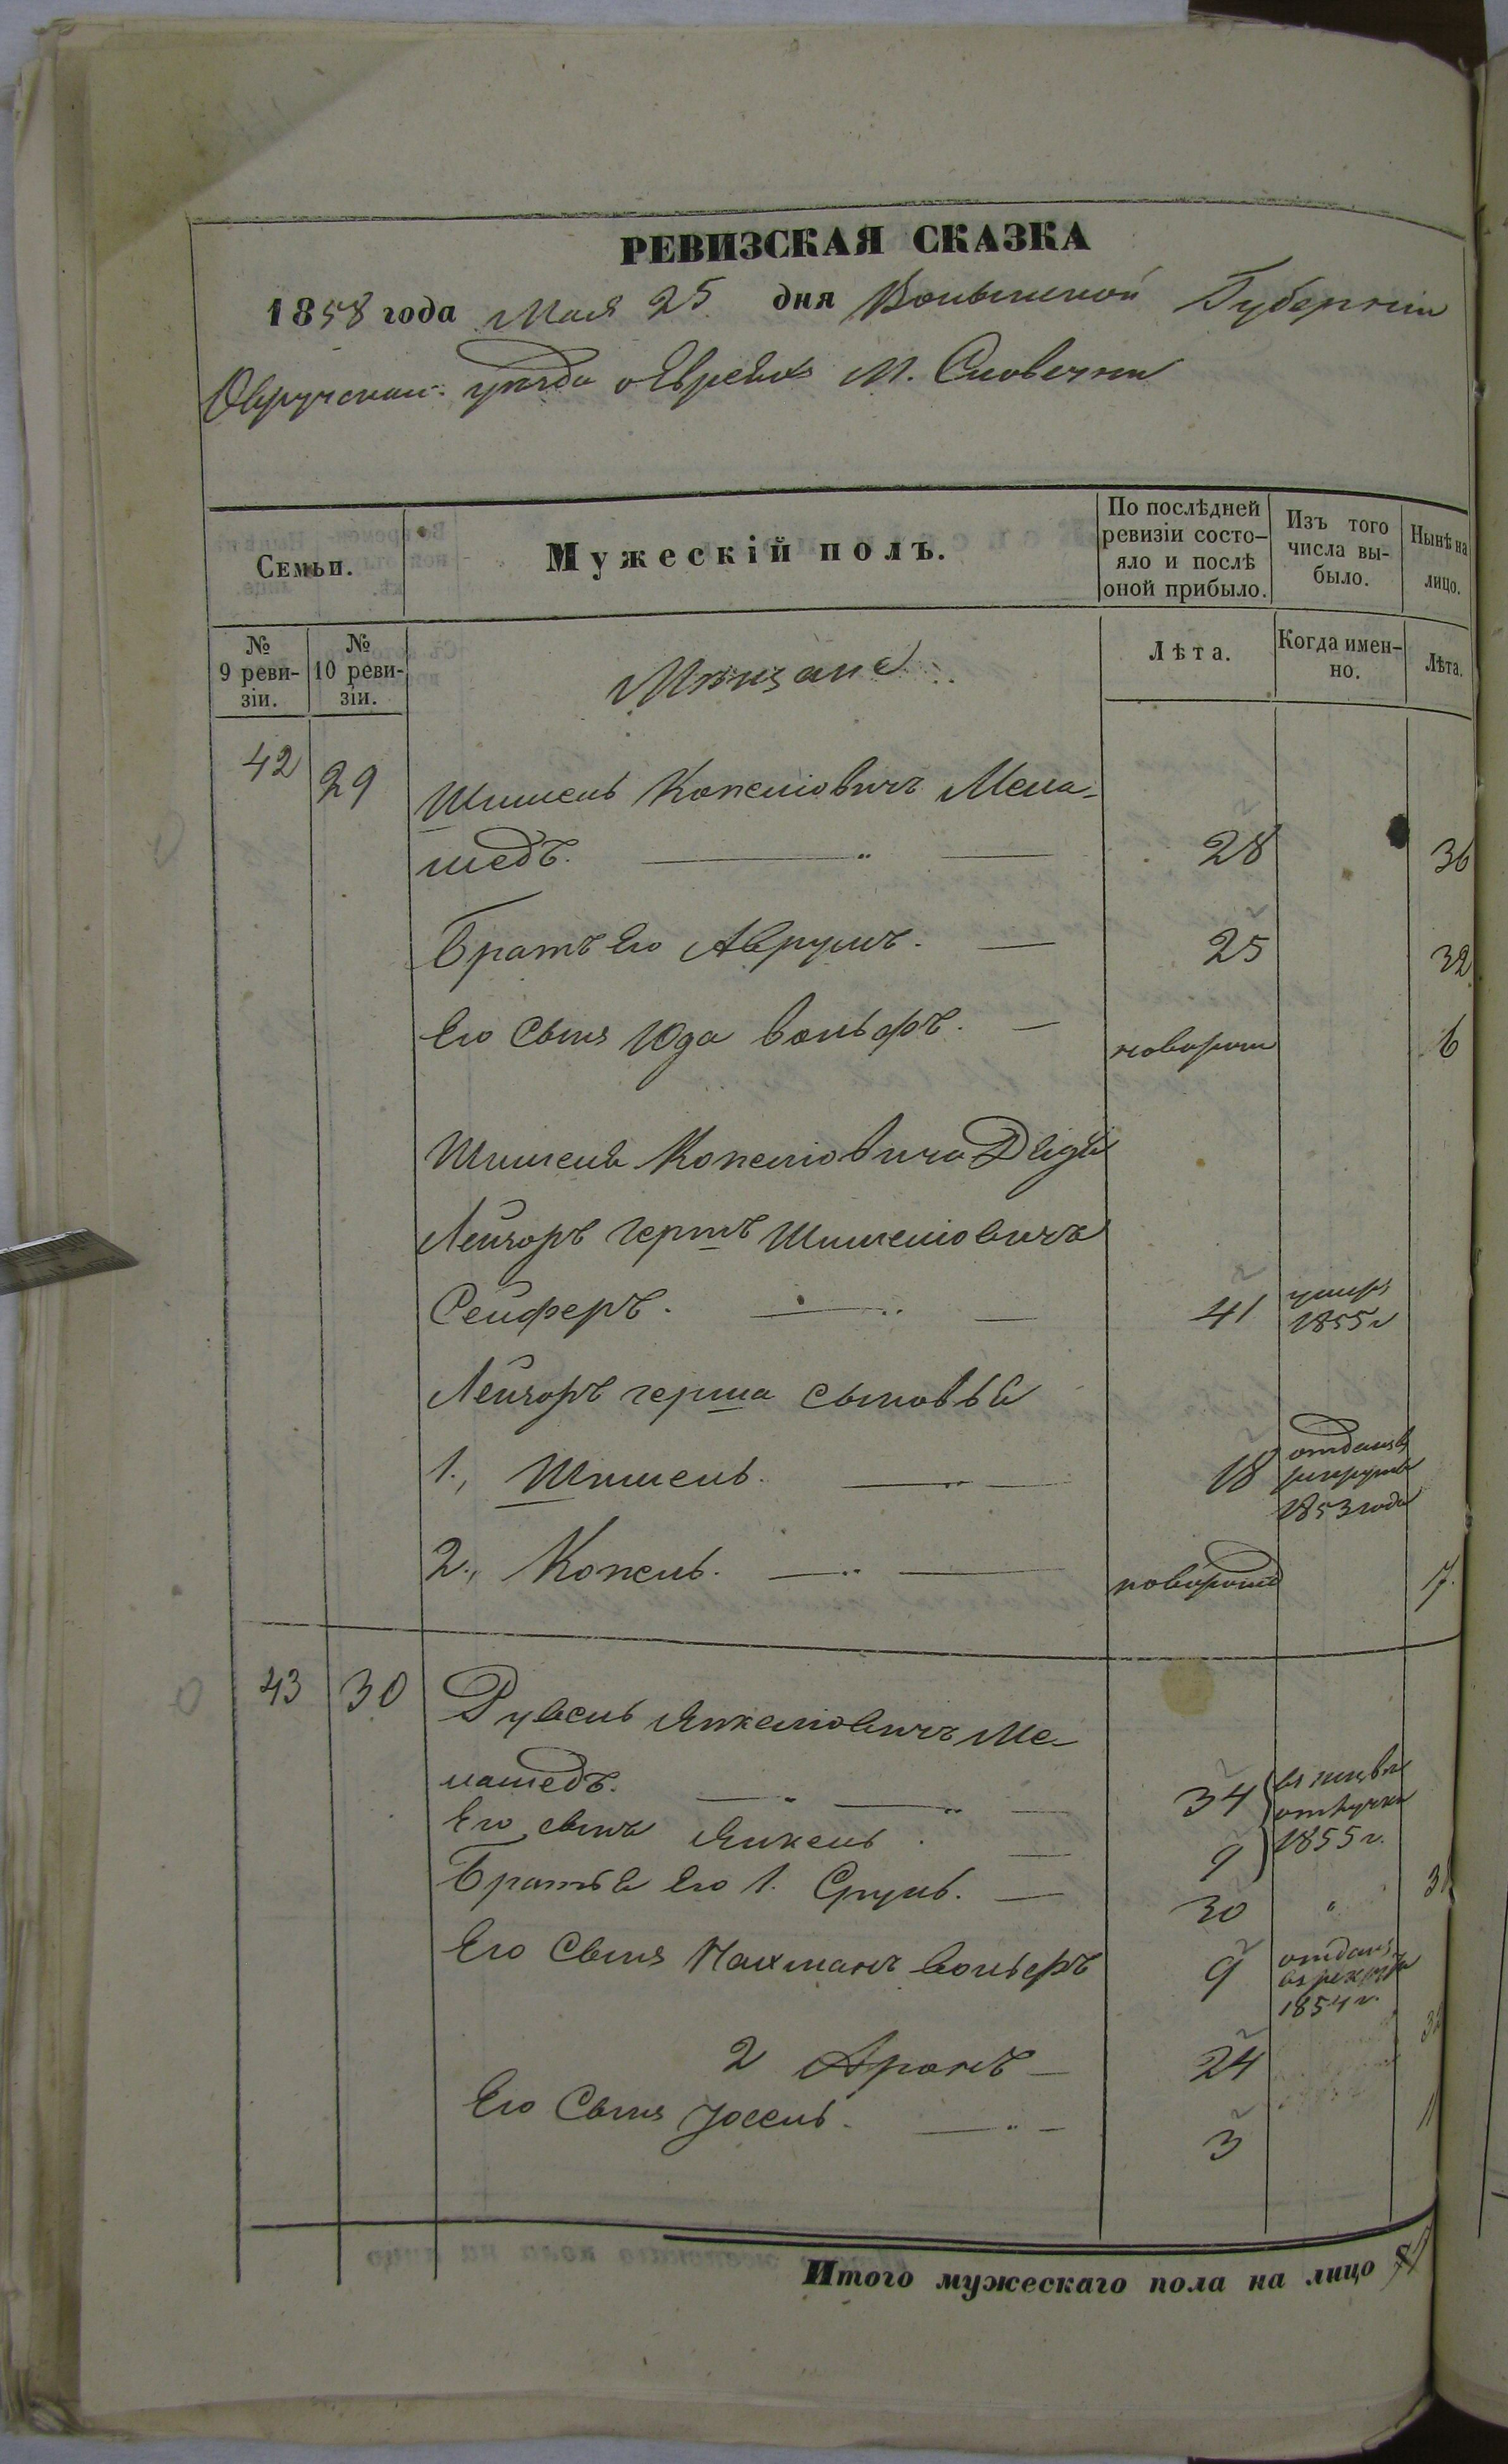 РЕВИЗСКАЯ СКАЗКА
1858 года Мая 25 дня Волынской Губернии
Овручскаго уѣзда о Евреяхъ М. Словечна
Семьи.
Мужескій полъ.
По послѣдней ревизіи состо-
яло и послѣ
оной прибыло.
Изъ того
числа вы-
было.
Нынѣ на
лицо.
№
9 реви-
зіи.
№
10 реви-
зіи.
Мѣщане
Лѣта.
Когда имен-
но.
Лѣта.
42 29 Шимель Копелiовичъ Мена-
шедъ. 28 36
Братъ Его Аврумъ. 25 32
Его Сынъ Юда Вольфъ. новорож 6
Шимеля Копелiовича Дядя
Лейзоръ Гершъ Шимелiовичъ
Сейферъ. 41 умеръ
1855 г
Лейзоръ Герша сыновья
1., Шимель. 18 отданъ въ
рекруты
1853 года
2., Копель. новорожд 7.
43 30 Рувель Янкелiовичъ Ме-
нашедъ. 34 въ
отлучки
1855 г.
Его сынъ Янкель. 9
Братья Его 1. Сруль. 30 " 38
Его Сынъ Нахманъ Вольфъ 9 отданъ
въ рекруты
1854 г.
2 Аронъ 24 32
Его Сынъ Іосель. 3 11
Итого мужескаго пола на лицо